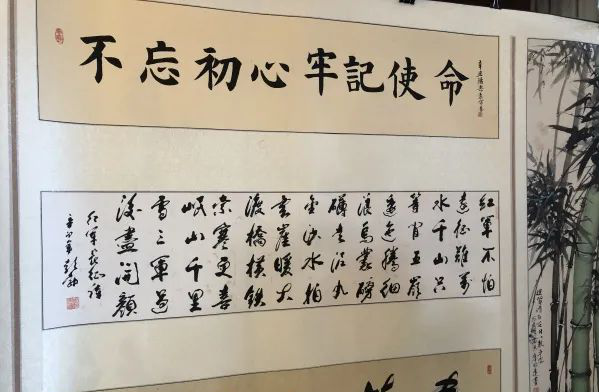 不忘初心牢記使命
紅軍不怕
遠征難萬
水千山只
等閒五嶺
逶迤騰細
浪烏蒙磅
礴走泥丸
金沙水拍
雲崖暖大
渡橋橫鐵
索寒更喜
岷山千里
雪三軍過
後盡開顏
紅軍長征詩